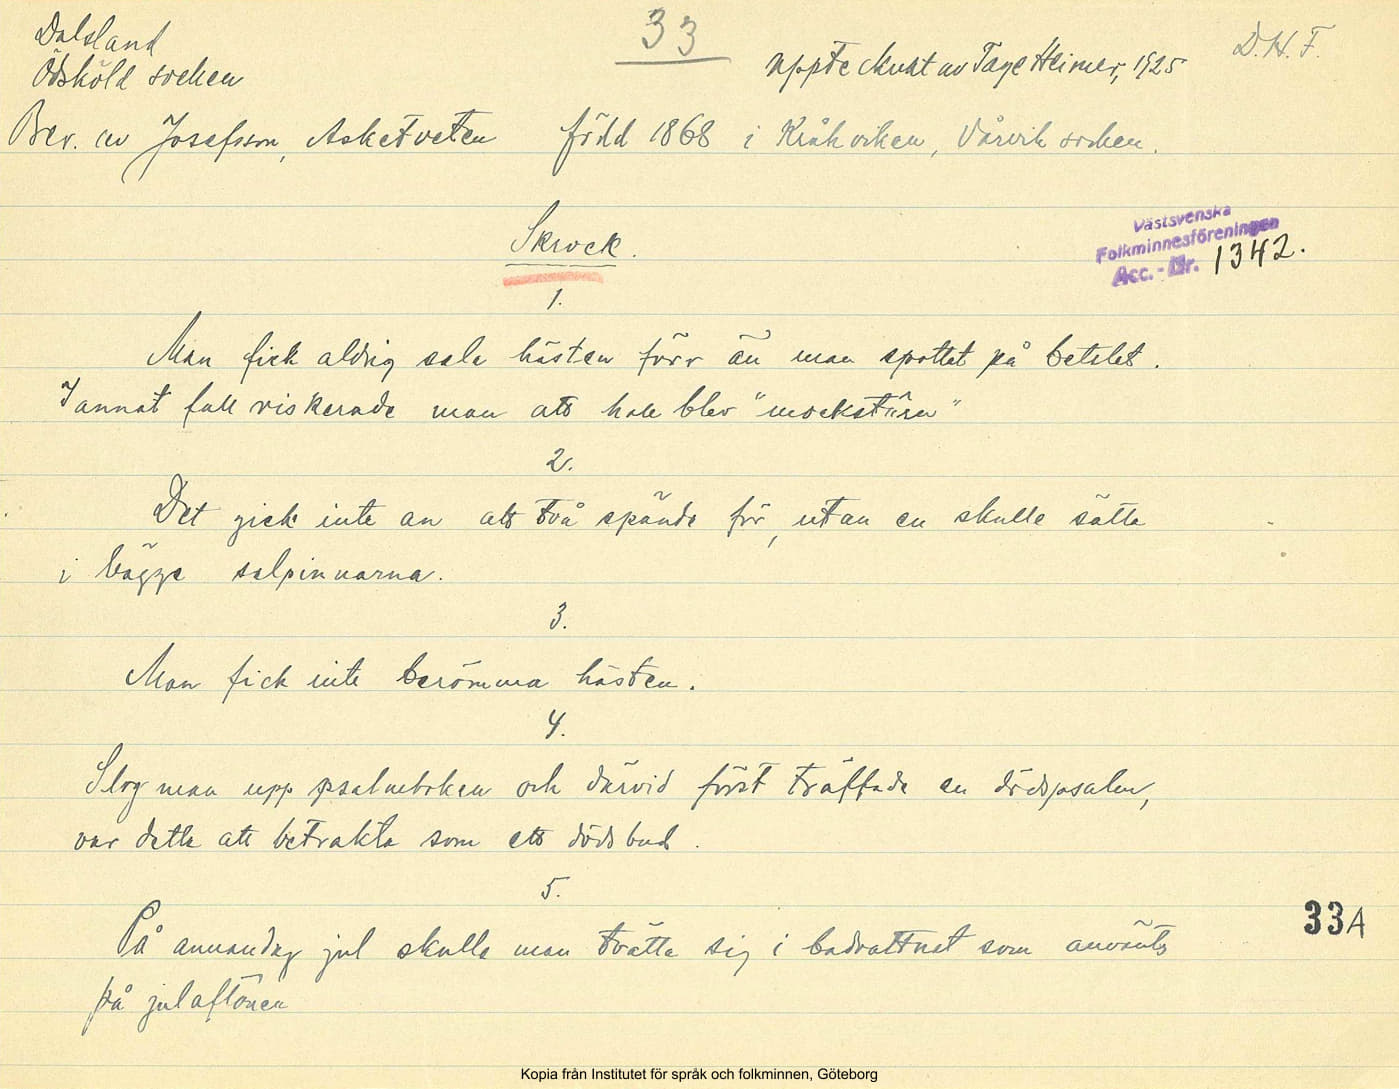 Dalsland
33
D.H.F.
Ödsköld socken
Upptecknat av Tage Heimer, 1925
Ber. av Josefsson, Asketveten född 1868 i Kråkviken, Vårvik socken.
Skrock.
Västsvenska
Folkminnesföreningen
Acc.-Nr. 1342.
1.
Man fick aldrig sela hästen förr än man spottat på betslet.
I annat fall riskerade man att han blev "mockstùlen"
2.
Det gick inte an att två spände för, utan en skulle sätta
i bägge selpinnarna.
3.
Man fick inte berömma hästen.
4.
Slog man upp psalmboken och därvid först träffade en dödspsalm,
var detta att betrakta som ett dödsbud.
5.
På annandag jul skulle man tvätta sig i badvattnet som använts
på julaftonen
33A
Kopia från Institutet för språk och folkminnen, Göteborg